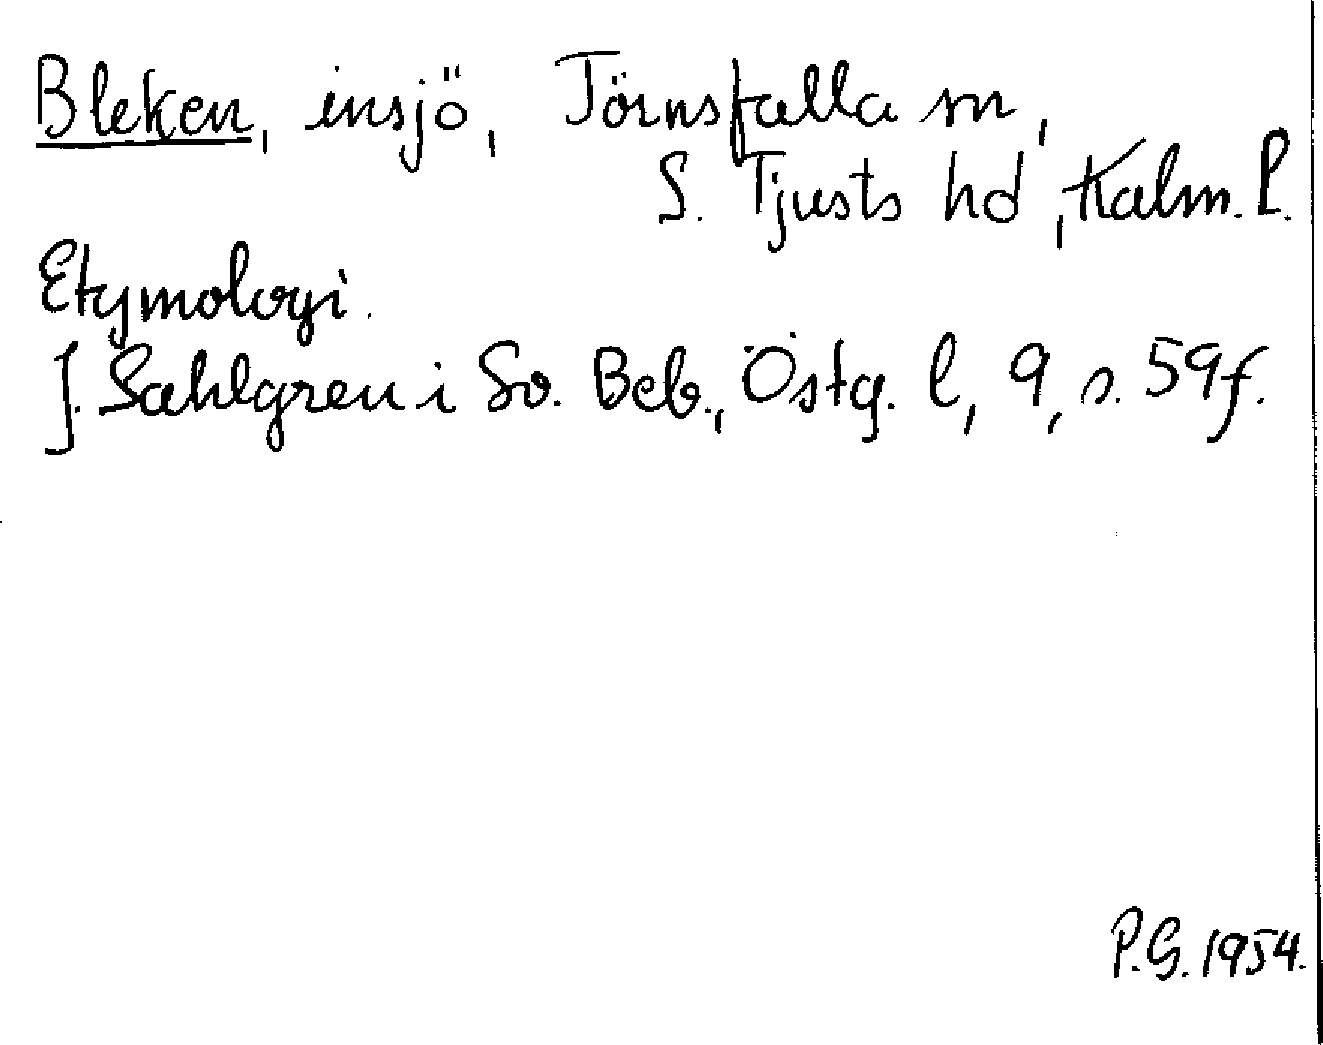 Bleken, insjö, Törnsfalla sn,
S. Tjusts hd, Kalm. l.
Etymologi.
J. Sahlgren i Sv. Beb., Östg. l, 9, s. 59f.
P.G. 1954.